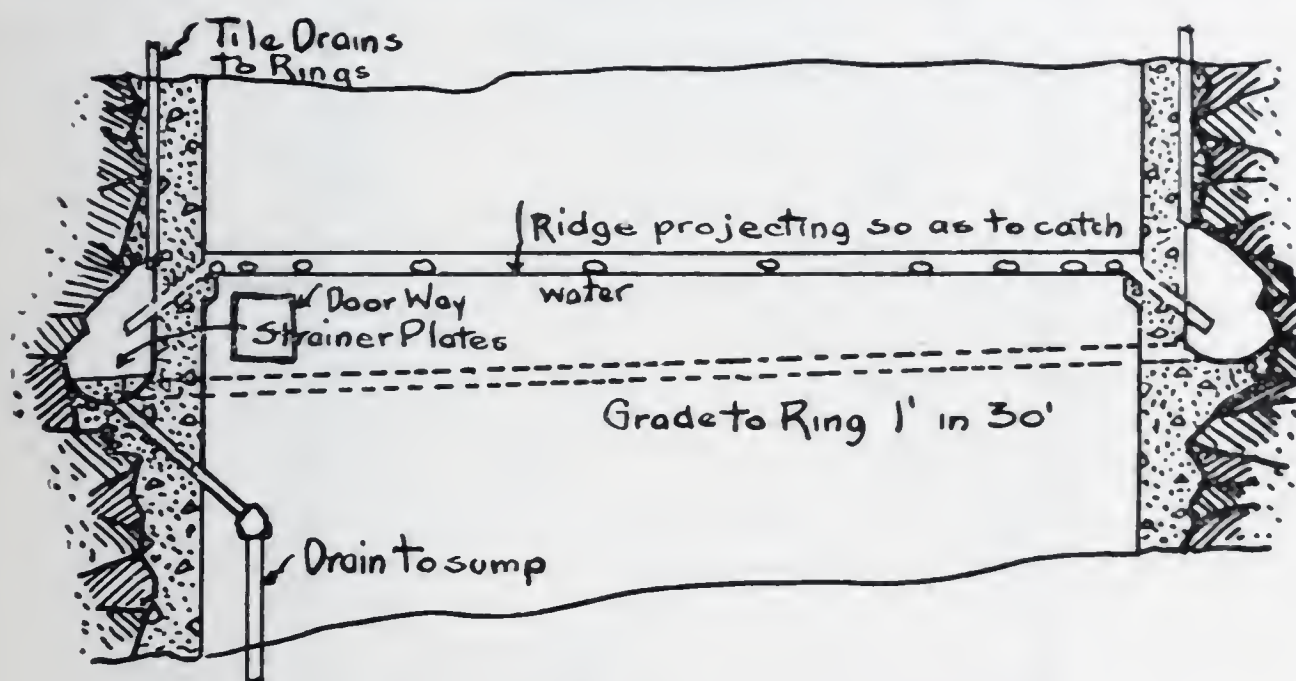 Tile Drains
to Rings
Ridge projecting so as to catch
water
Door Way
Strainer Plates
Grade to Ring 1' in 30'
Drain to sump